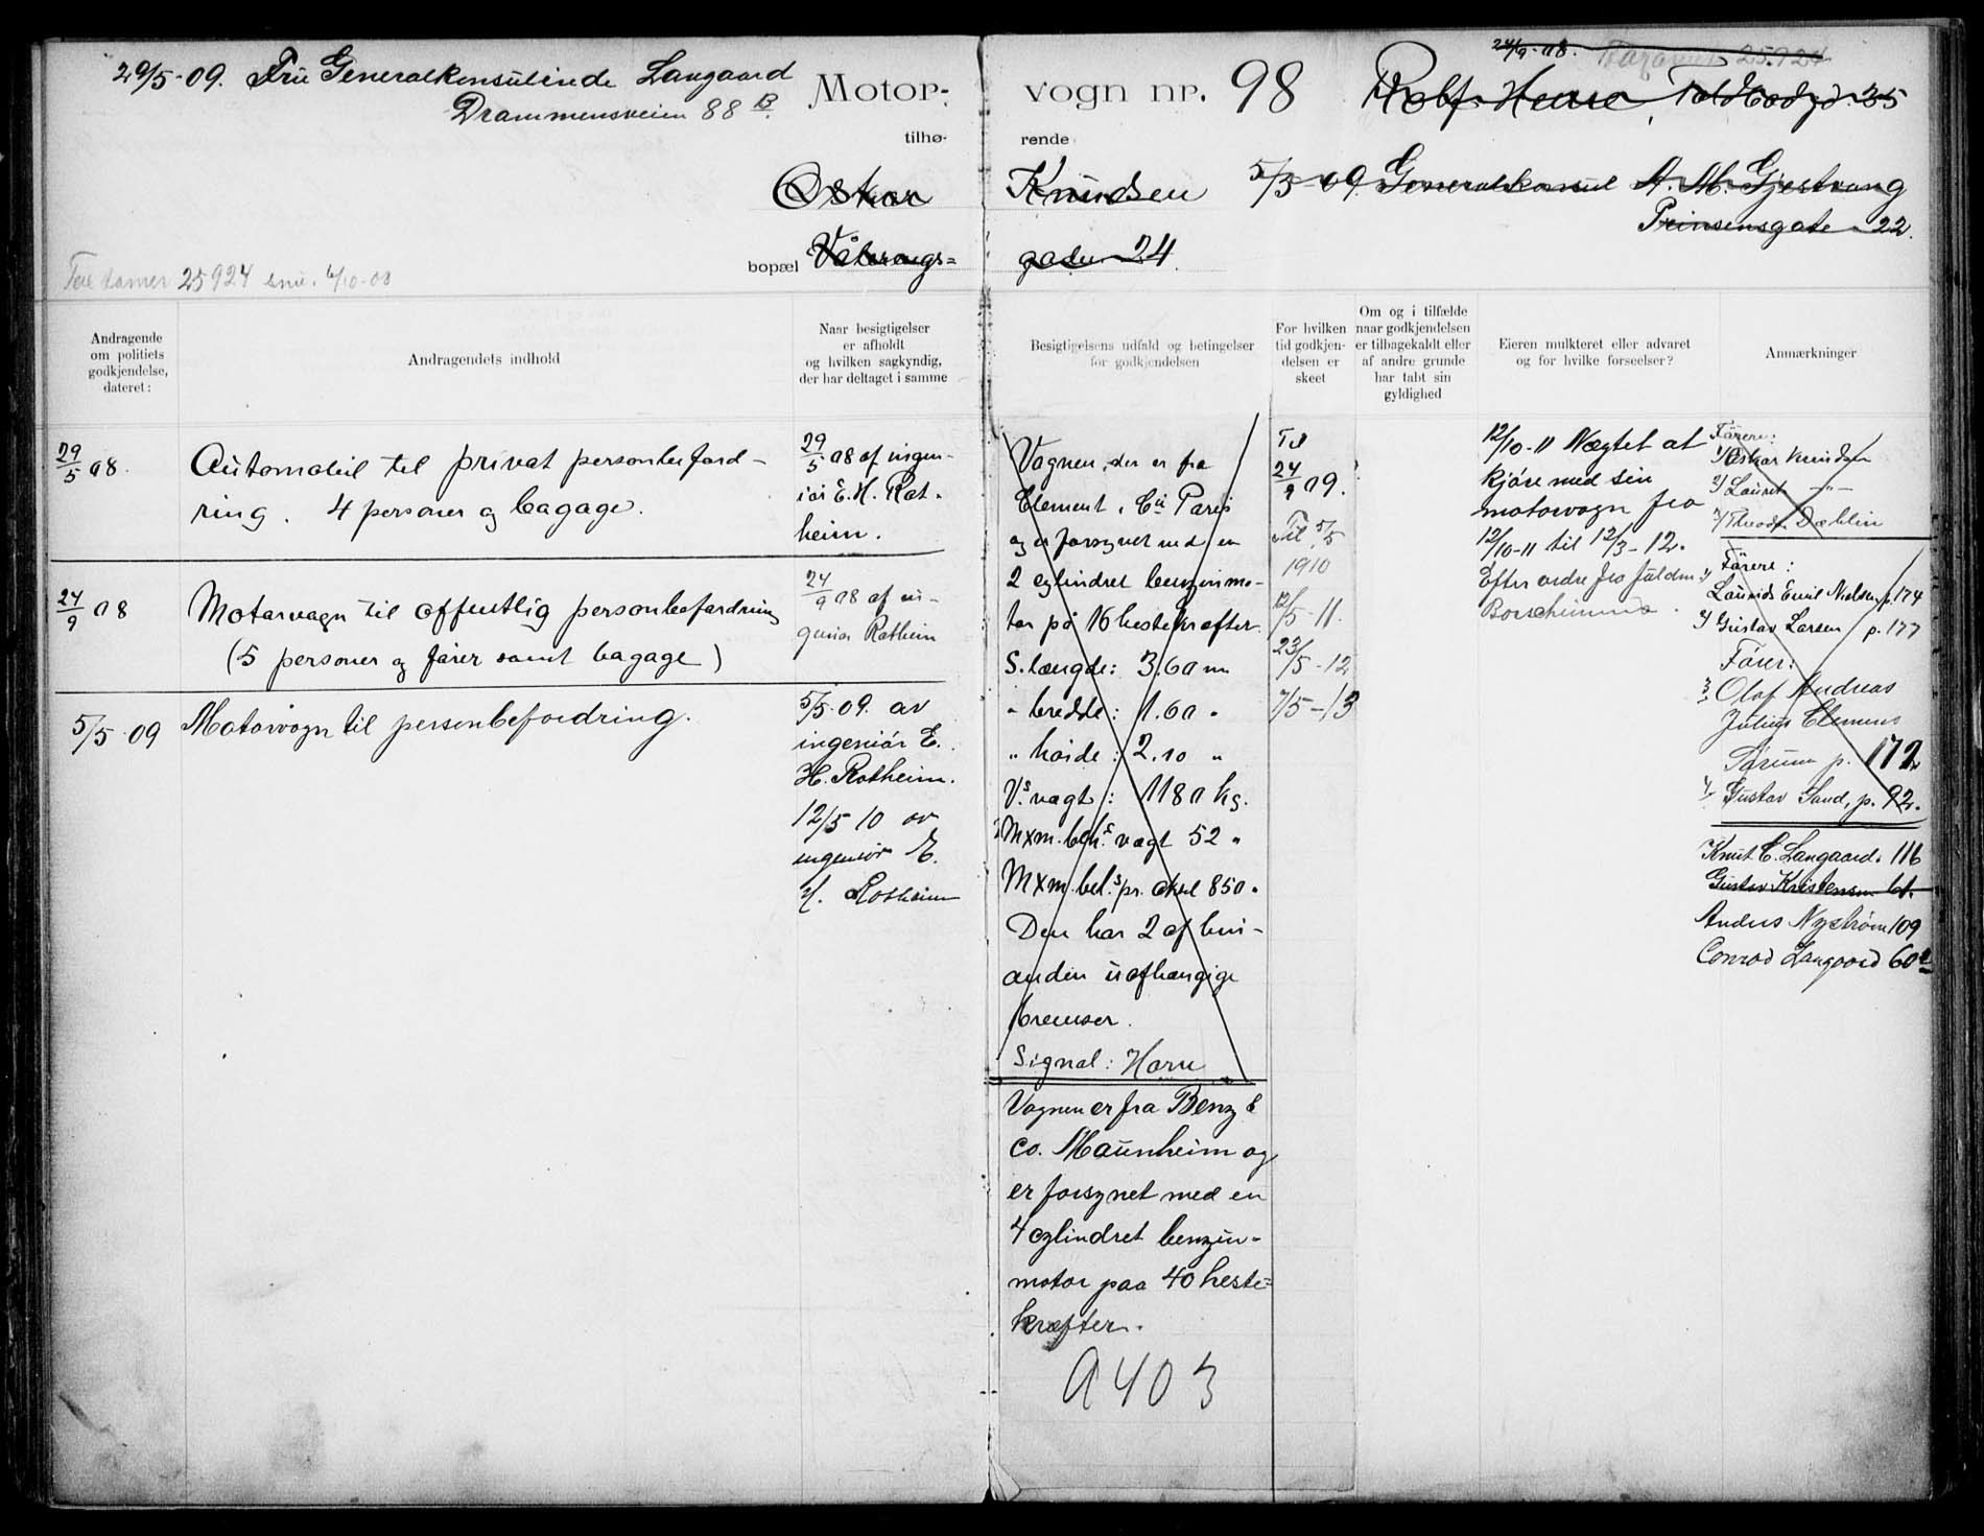 29/5-09. Frü Generalkonsulinde Langaard
Drammensveien 88 B.
Motor-
vogn nr. 98
24/9-08. 25.924
Rolf , Toldbodgd. 35
tilhø-
rende
Oskar
Knudsen
5/5-09 Generalkonsul A. M. Gjestvang
Prinsensgate 22.
bopæl Vålerengs=
gaden 24.
25924
Andragende
om politiets
godkjendelse,
dateret:
Andragendets indhold
Naar besigtigelser
er afholdt
og hvilken sagkyndig,
der har deltaget i samme
Besigtigelsens udfald og betingelser
for godkjendelsen
For hvilken
tid godkjen-
delsen er
skeet
Om og i tilfælde
naar godkjendelsen
er tilbagekaldt eller
af andre grunde
har tabt sin
gyldighed
Eieren mulkteret eller advaret
og for hvilke forseelser?
Anmærkninger
29/5 08.
Automobil til privat personbeford-
ring. 4 personer og bagage.
29/5 08 af ingen-
iør E. H. Rot-
heim.
24/9 08
Motorvogn til offentlig personbefordring
(5 personer og fører samt bagage)
24/9 08 af in-
geniør Rotheim
5/5 09
Motorvogn til personbefordring.
5/5 09. av
ingeniør E.
H. Rotheim.
12/5 10 av
ingeniør E.
H. Rotheim
Vognen, der er fra
Clement, Cie Paris
og er forsynet med en
2 cylindret benzinmo-
tor på 16 hestekræfter
S. længde: 3.60 m
" bredde: 1.60 "
" høide: 2.10 "
V.s vægt: 1180 kg.
Mxm. bel.s vægt 52 "
Mxm. bel.s pr. aksel 850 "
Den har 2 af hin-
anden uafhængige
bremser.
Signal: Horn
Vognen er fra Benz &
Co. Maünheim og
er forsynet med en
4 cylindret benzin-
motor paa 40 heste=
kræfter.
A403
Til
24/9 09.
Til 5/5
1910
12/5-11.
23/5-12
7/5-13
12/10-11 Nægtet at
kjøre med sin
motorvogn fra
12/10-11 til 12/3-12.
Efter ordre fra fuldm.
Førere:
1) Oskar Knudsen
2) Laurits -"-
3) Theodor Dæhlin
Førere:
1) Laurids Emil Nielsen p. 174
2) Gustav Larsen p. 177
Fører:
3. Olaf Andreas
Julius Clemens
Sørum p. 172
4. Gustav Sand, p. 92.
Knut C. Langaard. 116
Gustav Kristensen 61.
Anders Nystrøm 109
Conrad Langaard 60